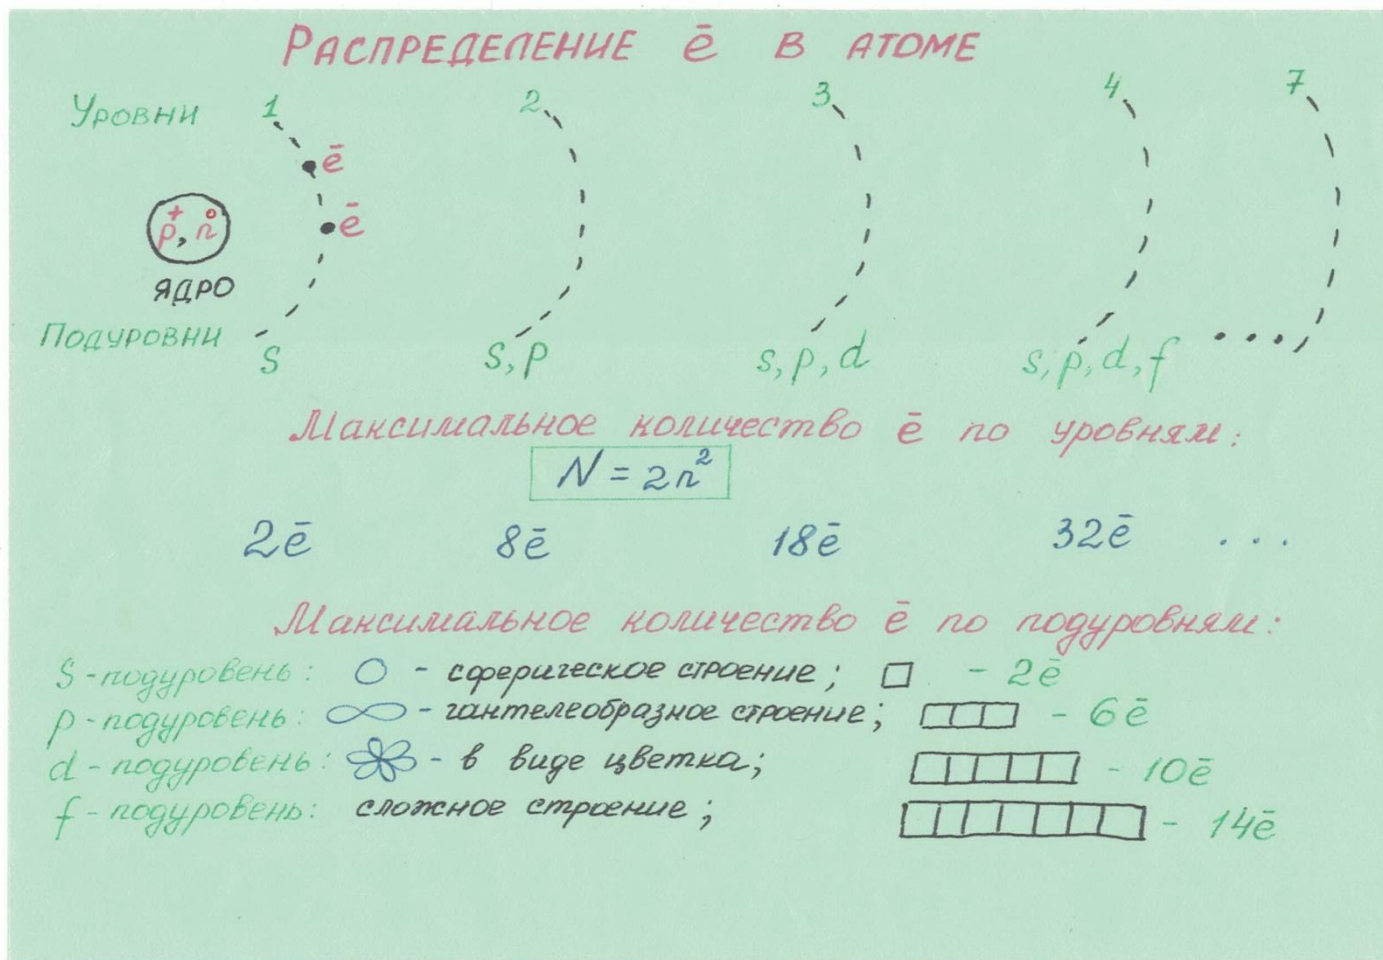 РАСПРЕДЕЛЕНИЕ ē В АТОМЕ
УРОВНИ 1 2 3 4 7
ē
ē
p⁺, n⁰
ЯДРО
ПОДУРОВНИ
s s, p s, p, d s, p, d, f ....
Максимальное количество ē по уровням:
N = 2n²
2ē 8ē 18ē 32ē ...
Максимальное количество ē по подуровням:
S - подуровень: - сферическое строение; - 2ē
p - подуровень: - гантелеобразное строение; - 6ē
d - подуровень: - в виде цветка; - 10ē
f - подуровень: сложное строение; - 14ē